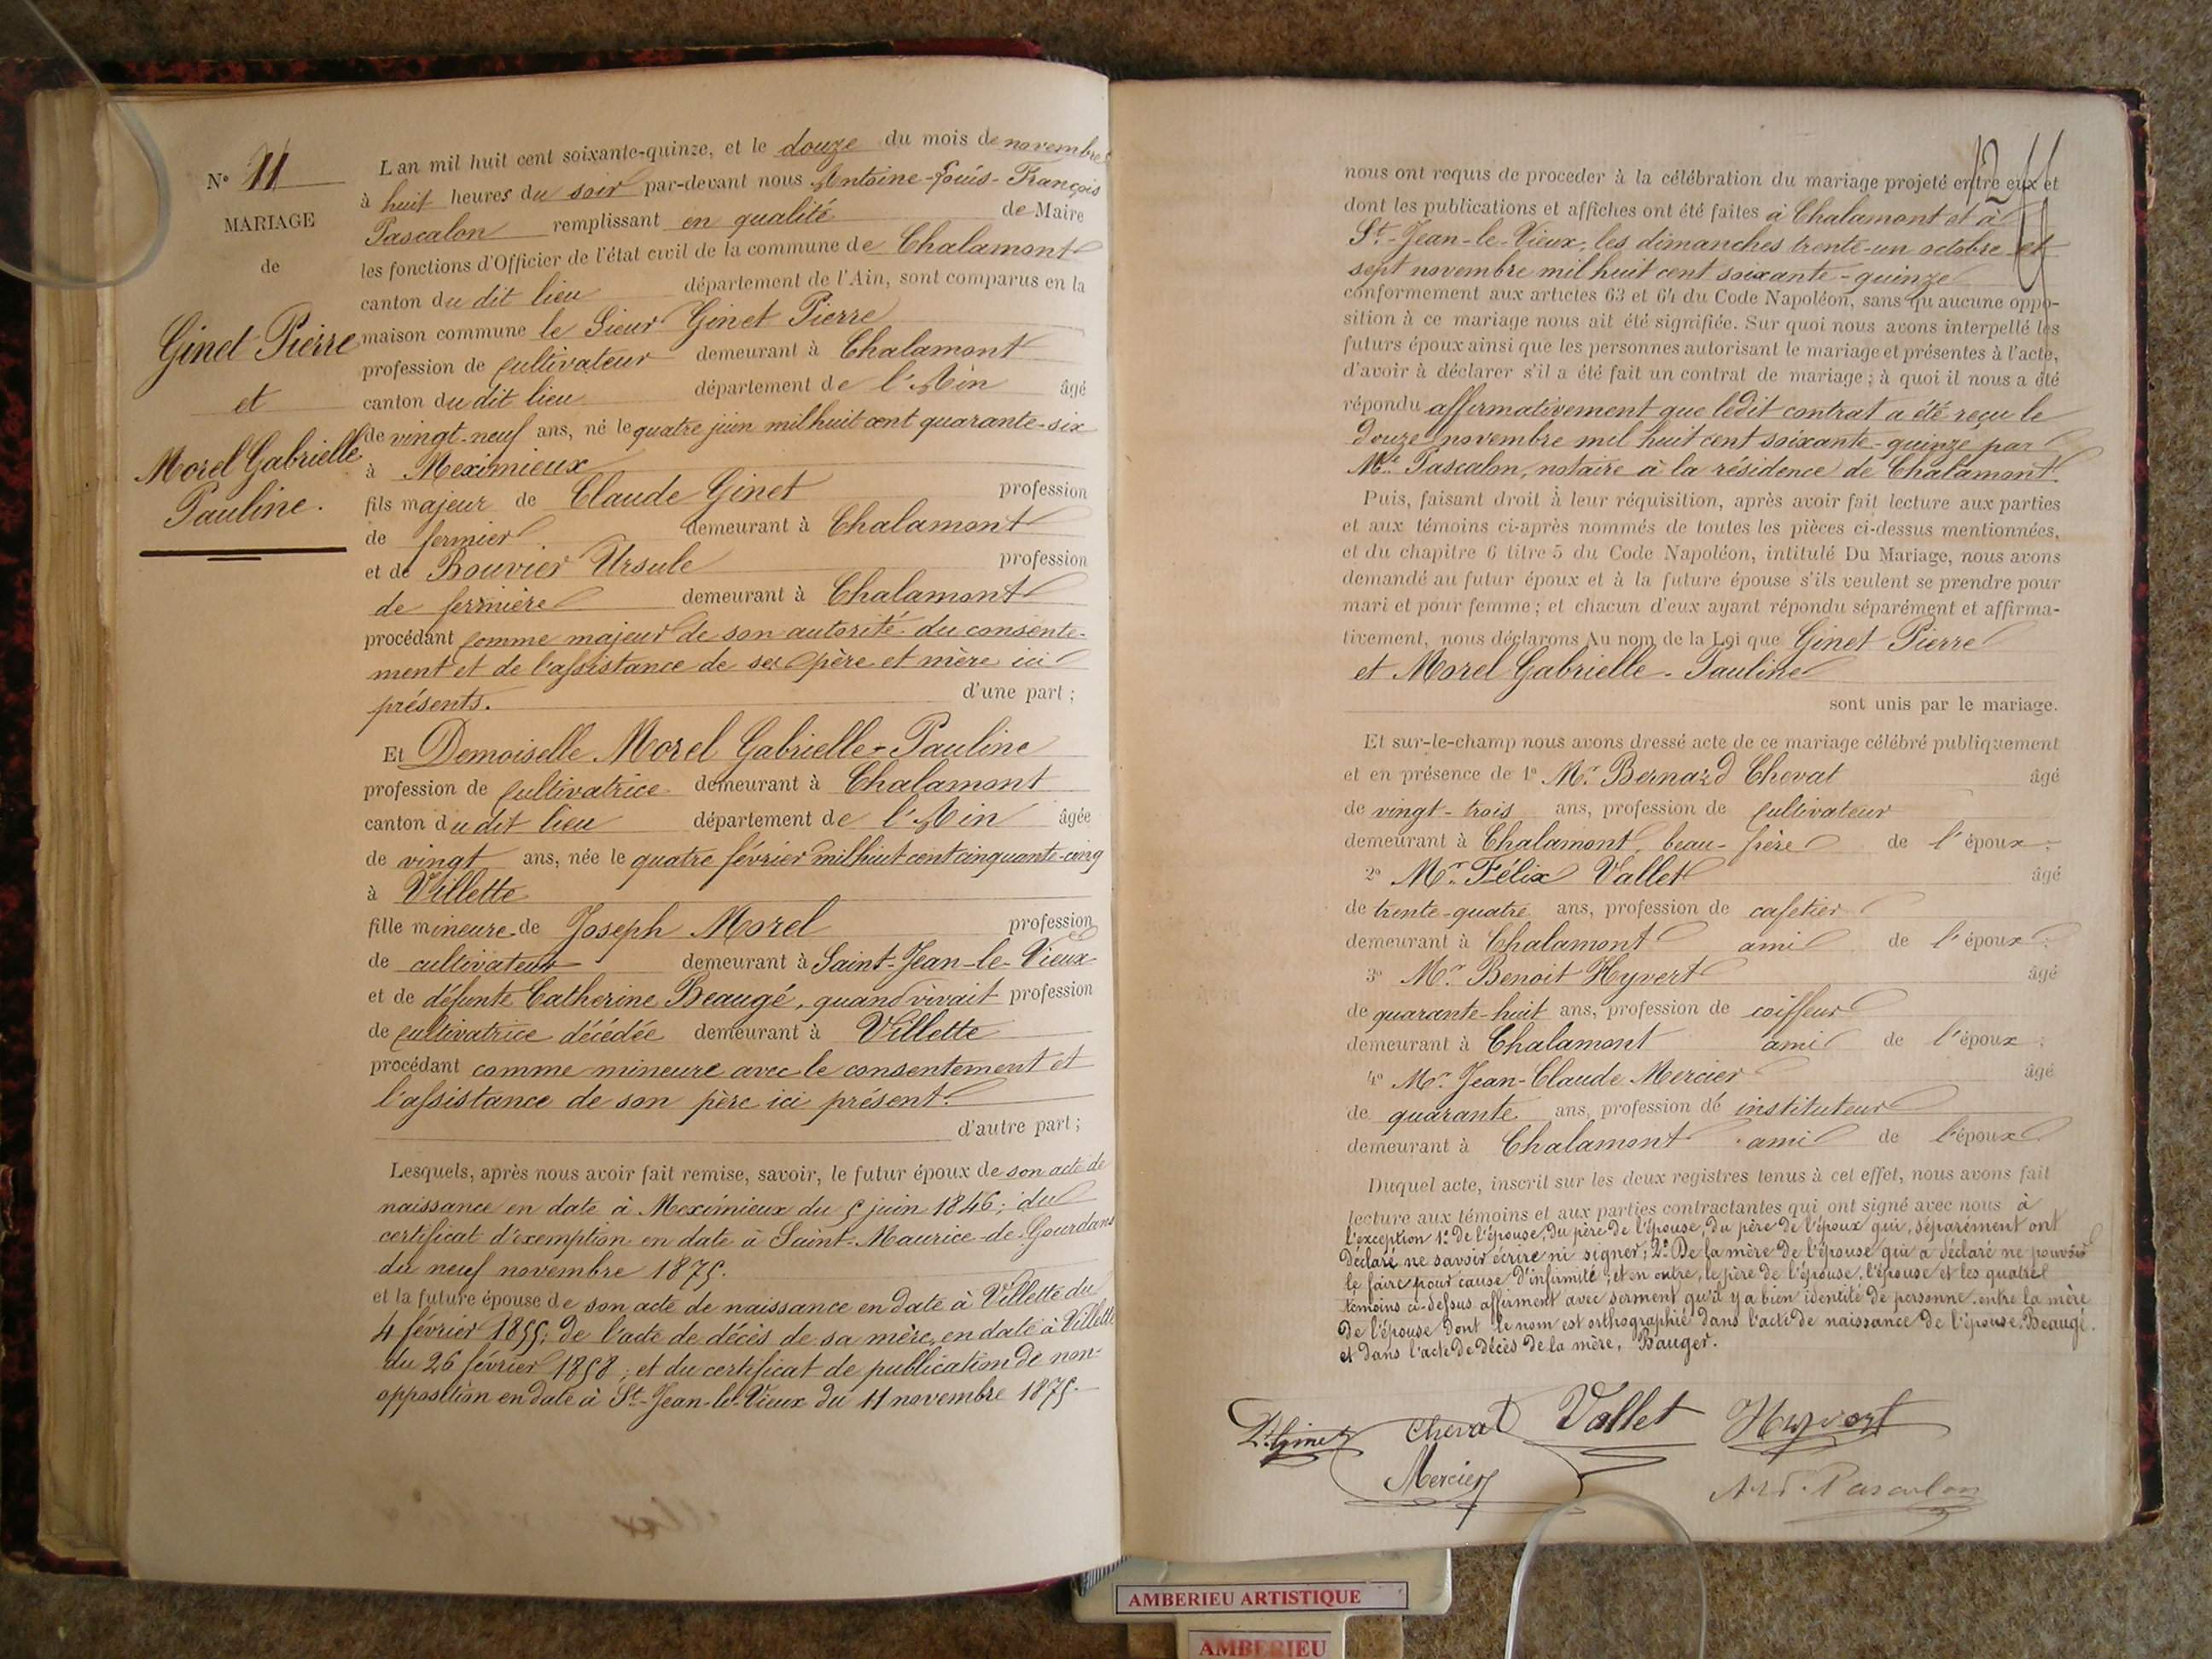 N° 11
MARIAGE
de
Ginet Pierre
et
Morel Gabrielle
Pauline.
L'an mil huit cent soixante-quinze, et le douze du mois de novembre
à huit heures du soir par-devant nous Antoine-Louis-François
Pascalon remplissant en qualité de Maire
les fonctions d'Officier de l'état civil de la commune de Chalamont
canton du dit lieu département de l'Ain, sont comparus en la
maison commune le Sieur Ginet Pierre
profession de cultivateur demeurant à Chalamont
canton du dit lieu département de l'Ain âgé
de vingt-neuf ans, né le quatre juin mil huit cent quarante-six
à Meximieux
fils majeur de Claude Ginet profession
de fermier demeurant à Chalamont
et de Bouvier Ursule profession
de fermière demeurant à Chalamont
procédant comme majeur de son autorité du consente-
ment et de l'assistance de ses père et mère ici
présents. d'une part ;
Et Demoiselle Morel Gabrielle-Pauline
profession de cultivatrice demeurant à Chalamont
canton du dit lieu département de l'Ain âgée
de vingt ans, née le quatre février mil huit cent cinquante-cinq
à Villette
fille mineure de Joseph Morel profession
de cultivateur demeurant à Saint-Jean-le-Vieux
et de défunte Catherine Beaugé, quand vivait profession
de cultivatrice décédée demeurant à Villette
procédant comme mineure avec le consentement et
l'assistance de son père ici présent.
d'autre part ;
Lesquels, après nous avoir fait remise, savoir, le futur époux de son acte de
naissance en date à Meximieux du 5 juin 1846; du
certificat d'exemption en date à Saint-Maurice-de-Gourdans
du neuf novembre 1875.
et la future épouse de son acte de naissance en date à Villette du
4 février 1855; de l'acte de décès de sa mère, en date à Villette
du 26 février 1858; et du certificat de publication de non-
opposition en date à St-Jean-le-Vieux du 11 novembre 1875.
12
nous ont requis de procéder à la célébration du mariage projeté entre eux et
dont les publications et affiches ont été faites à Chalamont et à
St-Jean-le-Vieux, les dimanches trente-un octobre et
sept novembre mil huit cent soixante-quinze
conformément aux articles 63 et 64 du Code Napoléon, sans qu'aucune oppo-
sition à ce mariage nous ait été signifiée. Sur quoi nous avons interpellé les
futurs époux ainsi que les personnes autorisant le mariage et présentes à l'acte,
d'avoir à déclarer s'il a été fait un contrat de mariage ; à quoi il nous a été
répondu affirmativement que ledit contrat a été reçu le
douze novembre mil huit cent soixante-quinze par
Me Pascalon, notaire à la résidence de Chalamont.
Puis, faisant droit à leur réquisition, après avoir fait lecture aux parties
et aux témoins ci-après nommés de toutes les pièces ci-dessus mentionnées,
et du chapitre 6 titre 5 du Code Napoléon, intitulé Du Mariage, nous avons
demandé au futur époux et à la future épouse s'ils veulent se prendre pour
mari et pour femme ; et chacun d'eux ayant répondu séparément et affirma-
tivement, nous déclarons Au nom de la Loi que Ginet Pierre
et Morel Gabrielle-Pauline
sont unis par le mariage.
Et sur-le-champ nous avons dressé acte de ce mariage célébré publiquement
et en présence de 1° Mr. Bernard Cheval âgé
de vingt-trois ans, profession de cultivateur
demeurant à Chalamont, beau-frère de l'époux ;
2° Mr. Félix Vallet âgé
de trente-quatre ans, profession de cafetier
demeurant à Chalamont ami de l'époux ;
3° Mr. Benoit Hyvert âgé
de quarante-huit ans, profession de coiffeur
demeurant à Chalamont ami de l'époux ;
4° Mr. Jean-Claude Mercier âgé
de quarante ans, profession de instituteur
demeurant à Chalamont ami de l'époux
Duquel acte, inscrit sur les deux registres tenus à cet effet, nous avons fait
lecture aux témoins et aux parties contractantes qui ont signé avec nous à
l'exception 1° de l'épouse, du père de l'épouse, du père de l'époux qui, séparément ont
déclaré ne savoir écrire ni signer; 2° De la mère de l'épouse qui a déclaré ne pouvoir
le faire pour cause d'infirmité; et en outre, le père de l'épouse, l'épouse et les quatre
témoins ci-dessus affirment avec serment qu'il y a bien identité de personne entre la mère
de l'épouse dont le nom est orthographié dans l'acte de naissance de l'épouse, Beaugé.
et dans l'acte de décès de la mère, Bauger.
Pre Ginet Cheval Vallet Hyvert
Mercier Pascalon
AMBERIEU ARTISTIQUE
AMBERIEU